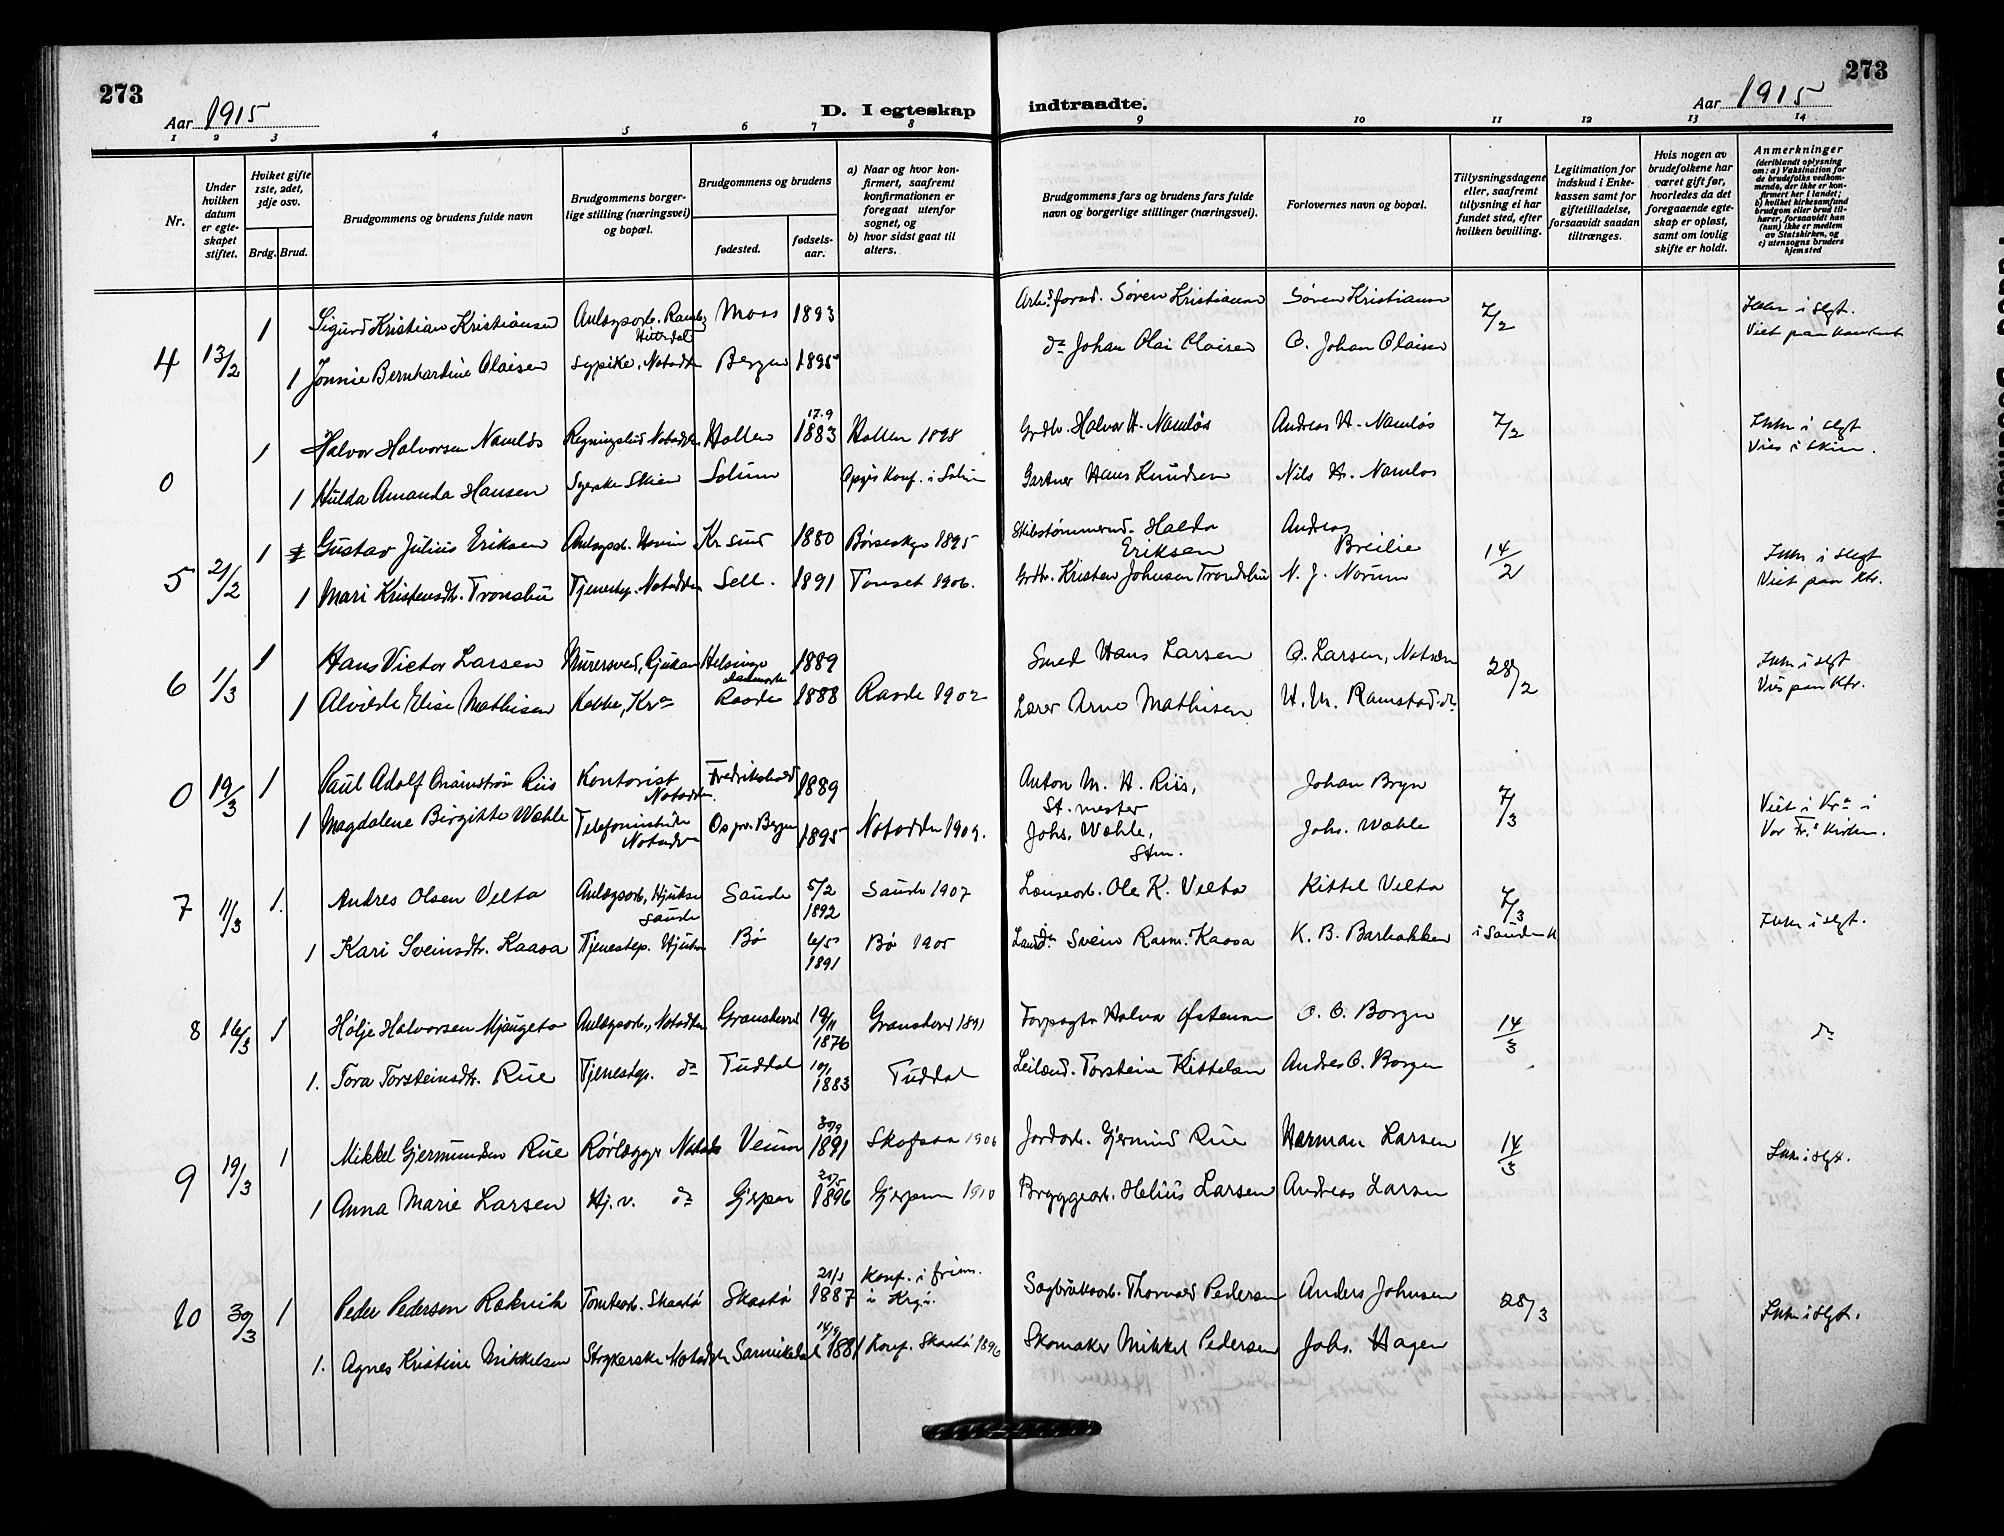 273
273
Aar 1915
D. I egteskap
indtraadte.
Aar 1915
1 2 3 4 5 6 7 8 9 10 11 12 13 14
Nr.
Under hvilken datum er egteskapet stiftet.
Hviket gifte 1ste, 2det, 3dje osv.
Brdg. Brud.
Brudgommens og brudens fulde navn
Brudgommens borgerlige stilling (næringsvei) og bopæl.
Brudgommens og brudens
fødested.
fødselsaar.
a) Naar og hvor konfirmert, saafremt konfirmationen er foregaat utenfor sognet, og
b) hvor sidst gaat til alters.
Brudgommens fars og brudens fars fulde navn og borgerlige stillinger (næringsvei).
Forlovernes navn og bopæl.
Tillysningsdagene eller, saafremt tillysning ei har fundet sted, efter hvilken bevilling.
Legitimation for indskud i Enkekassen samt for giftetilladelse, forsaavidt saadan tiltrænges.
Hvis nogen av brudefolkene har været gift før, hvorledes da det foregaaende egteskap er opløst, samt om lovlig skifte er holdt.
Anmerkninger
(deriblandt oplysning om: a) Vaksination for de brudefolks vedkommende, der ikke er konfirmert her i landet; b) hvilket kirkesamfund brudgom eller brud tilhører, forsaavidt han (hun) ikke er medlem av Statskirken, og c) utensogns bruders hjemsted
4 13/2 1 Sigurd Kristian Kristiansen Moss 1893 Søren Kristiansen Søren Kristiansen 7/2
1 Jonnie Bernhardine Olaisen Sypike, Notodden Bergen 1895 do Johan Olai Olaisen O. Johan Olaisen
0 1 Halvor Halvorsen Namløs Notodden Hollen 17.9 1883 Hollen 1898 Grdbr. Halvor H. Namløs Andreas H. Namløs 7/2 Ikke i slegt
Vies i Skien.
1 Hulda Amanda Hansen Syerske Skien Solum Konf. i Solum Gartner Hans Knudsen Nils H. Namløs
5 21/2 1 Gustav Julius Eriksen Kr sund 1880 1895 Eriksen Andreas Breilie 14/2 Ikke i slegt
Viet paa Ktr.
1 Mari Kristensdtr. Tronsbu Tjenestep. Notodden Sell. 1891 Tonset 1906. N. J. Norum
6 1/3 1 Hans Victor Larsen Murersvend, Rjukan Helsingør Danmark 1889 Smed Hans Larsen O. Larsen, Notodden 28/2 Ikke i slegt
Vies paa Ktr.
1 Alvilde Elise Mathisen Kokke, Kra Raade 1888 Raade 1902 Lærer Arne Mathisen H. M. Ramstad do
0 19/3 1 Paul Adolf Riis Kontorist Notodden Fredrikshald 1889 Anton M. H. Riis, St. mester Johan Bryn 7/3
1 Magdalene Birgitte Wæhle Telefonistinde Notodden Bergen 1895 Notodden 1909. Johs. Wæhle, Johs. Wæhle Viet i Kra i
Vor Fr.s kirken.
7 11/3 1. Andres Olsen Velta Anlægsarb. Hjuksebø Saude Saude 5/2 1892 Saude 1907 Ole K. Velta Kittel Velta 7/3 Ikke i slegt.
1 Kari Sveinsdtr. Kaasa Tjenestep. Bø 6/5 1891 Bø 1905 Svein Rasm. Kaasa K. B. Barbakken
8 16/3 1 Hølje Halvorsen Mjaugeto Anlægsarb., Notodden Gransherred 19/11 1876 Gransherred 1891 Halvor Østensen O. O. Borgen 14/3 do
1. Tora Torsteinsdtr. Rue Tjenestep. do Tuddal 1883 Tuddal Leilænd. Torstein Kittelsen Andres O. Borgen
9 19/3 1 Mikkel Gjermundsen Rue Rørlægger Notodden Veum 30/9 1891 Skafsaa 1906 Jordarb. Gjermund Rue Herman Larsen 14/3 Ikke i slgt.
1 Anna Marie Larsen Hj.v. do Gjerpen 1896 Gjerpen 1910 Bryggearb. Helius Larsen Andreas Larsen
10 30/3 1 Peder Pedersen Rakvik Tomtearb. Skaatø Skaatø 1887 Konf. i frim. i Krgø. Sagbruksarb. Thorvald Pedersen Anders Johnsen 28/3 Ikke i slgt.
1. Agnes Kristine Mikkelsen Strykerske Notodden Sannikedal 1881 Konf. Skaatø 1896 Skomaker Mikkel Pedersen Johs. Hagen